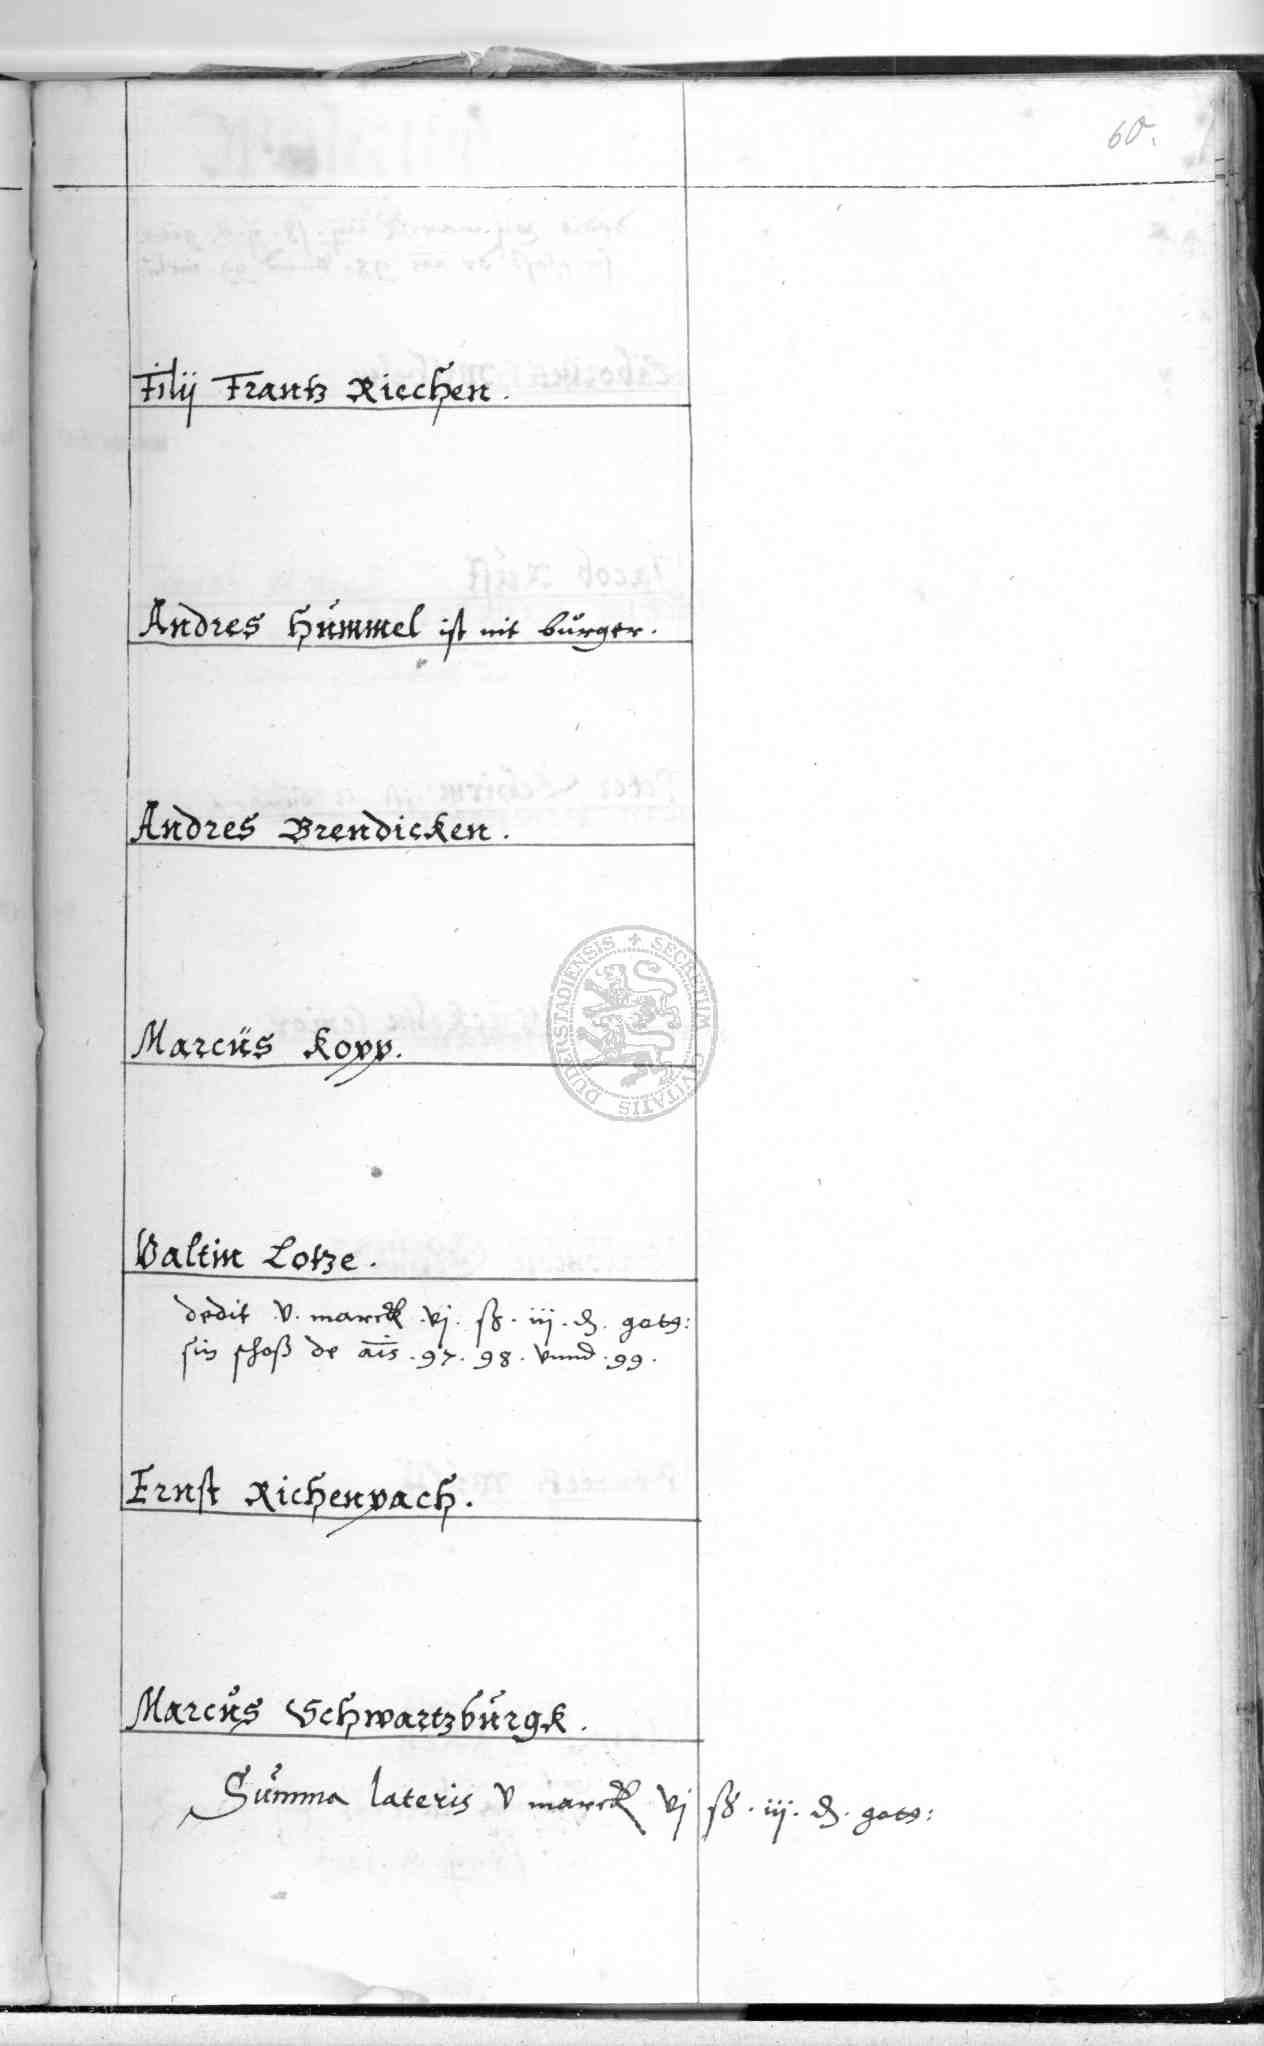 60.
Filij Frantz Riechen.
Andres Hümmel ist nit bürger.
Andres Brendicken.
Marcus Kopp.
SECRETUM CIVITATIS DUDERSTADIENSIS
Valtin Lotze.
dedit v. marck vj. ß. iij. ₰. gots:
sin schoß de ais. 97. 98. vnnd. 99.
Ernst Richenpach.
Marcus Schwartzburgk.
Summa lateris v marck vj ß. iij. ₰. gots: